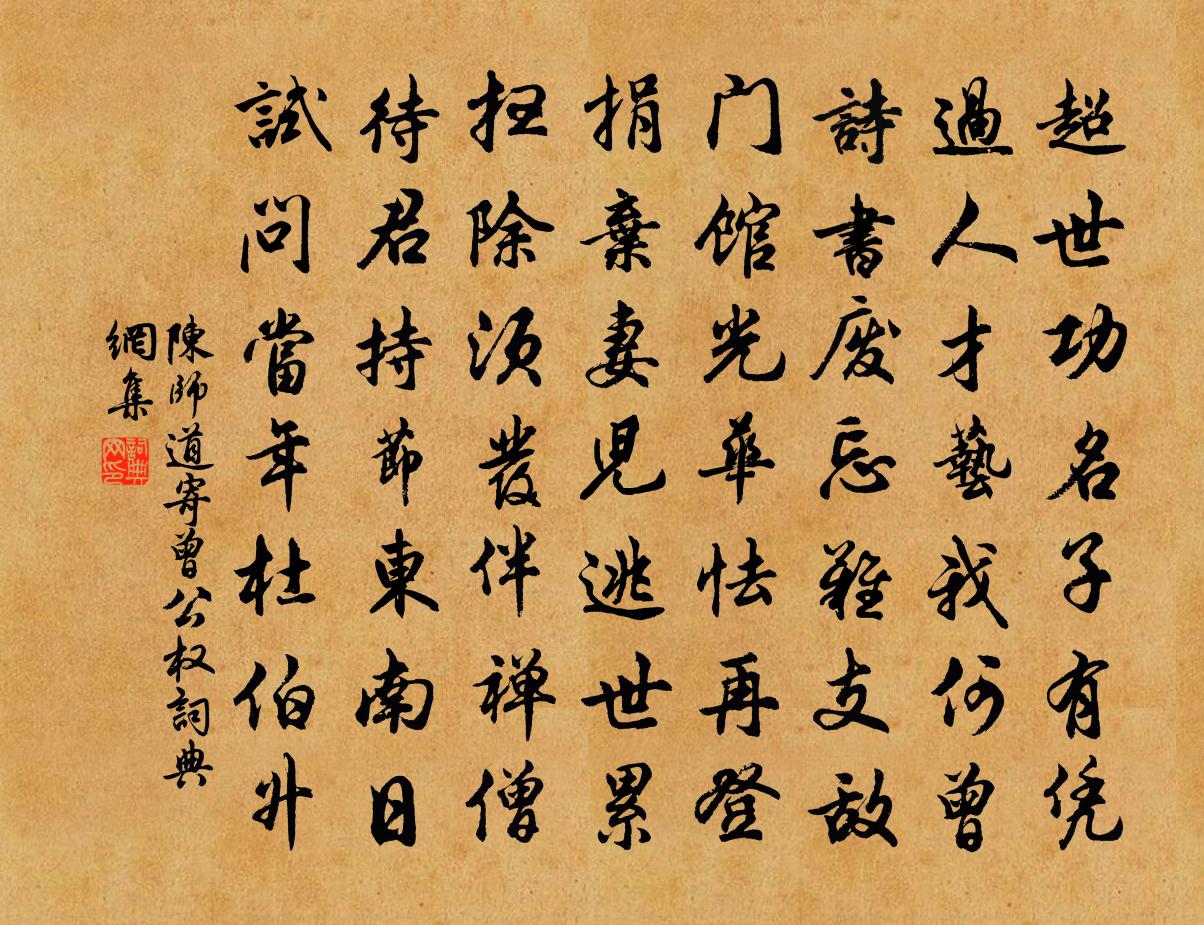 超世功名子有凭
過人才藝我何曾
詩書废忘難支敌
门馆光華怯再登
捐棄妻児逃世累
扫除须发伴禅僧
待君持节東南日
試问當年杜伯升
陳師道寄曾公权詞典
網集
詞典网印